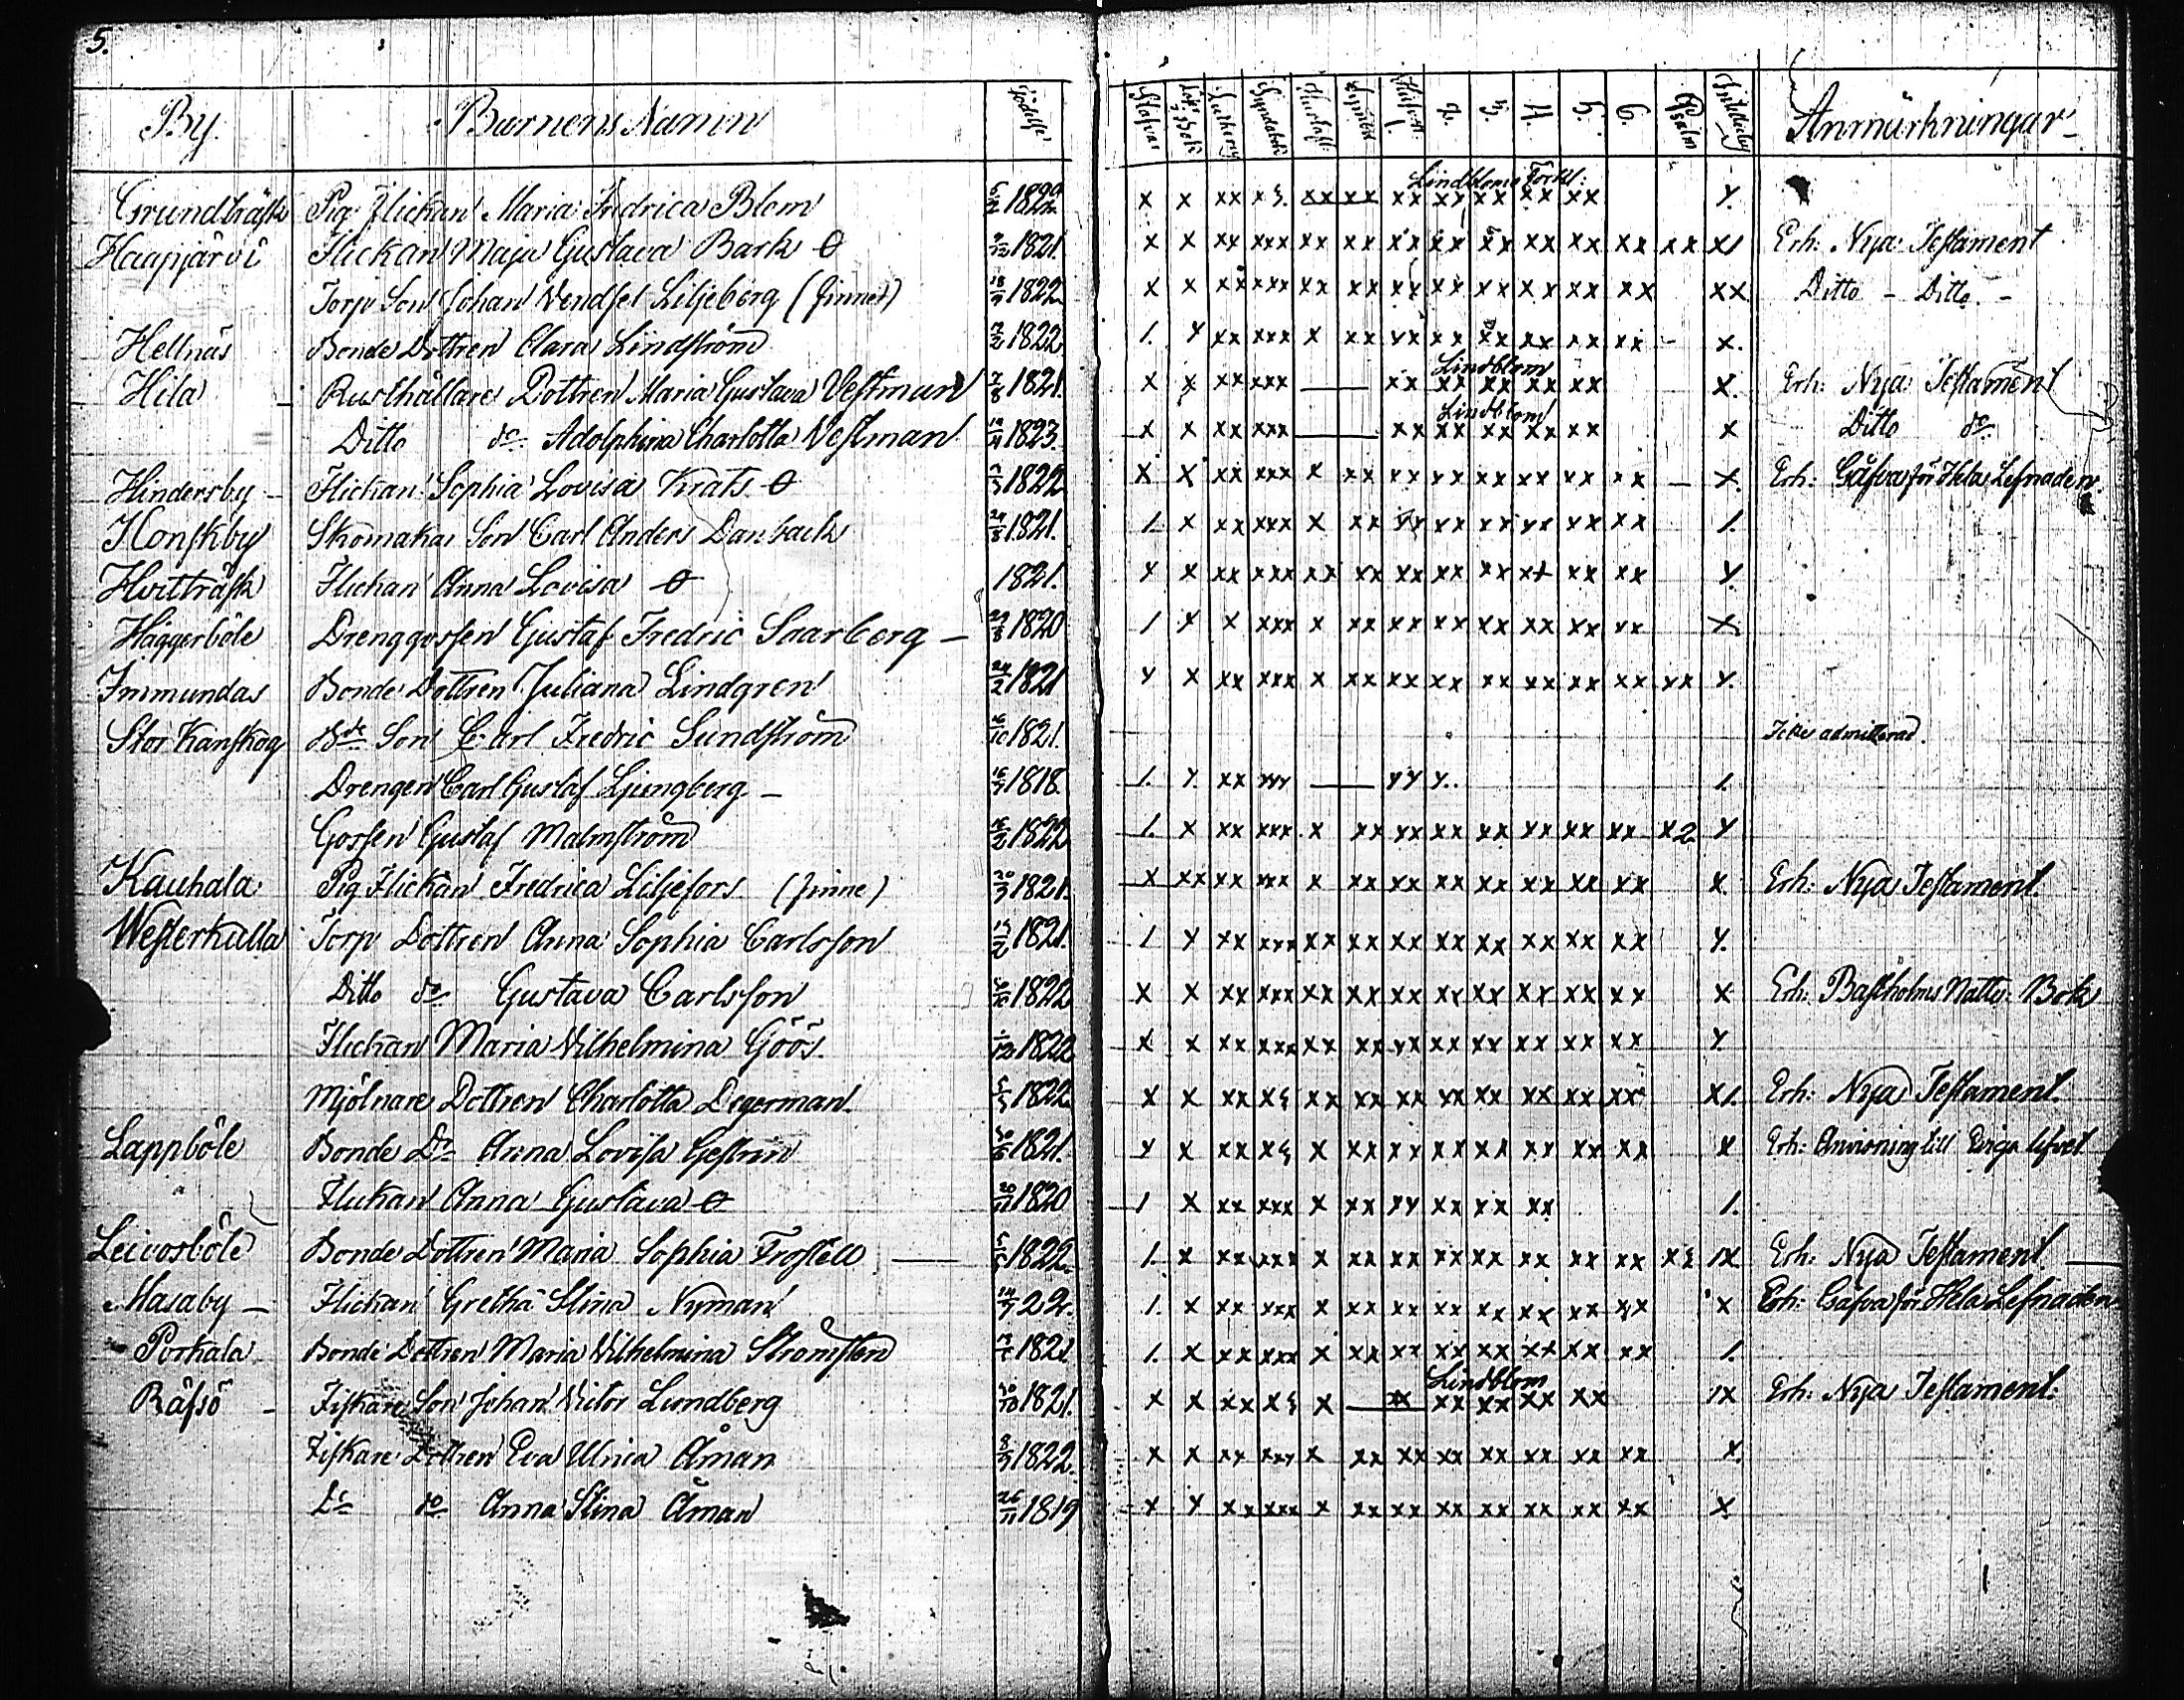 5.
By. Barnens Namn Födelse Stafvar Luthers Hustafl: 2. 3. 4. 5. 6. Psalm Anmärkningar
Grundträsk Pig Flickan Maria Fredrica Blom 1822 x x xx x3 xx xx Lindbloms Förkl: xx xx xx xx xx x.
Haapjärvi Flickan Maja Gustava Bark O 1821. x x xx xxx xx xx xx xx xx xx xx xx xx x1 Erh: Nya Testament
Torp Son Johan Vendsel Liljeberg (finne) 18/7 1822 x x xx xxx xx xx xx xx xx xx xx xx xx Ditto - Ditto. -
Hellnäs Bonde Dottren Clara Lindström 1822 1. x xx xxx x xx xx xx xx xx xx xx - x.
Hila - Rusthållare Dottren Maria Gustava Vestman 7/8 1821. x x xx xxx — Lindblom xx xx xx xx xx x. Erh: Nya Testament
Ditto do Adolphina Charlotta Vestman 1823. x x xx xxx — Lindblom xx xx xx xx xx x Ditto do
Hindersby - Flickan Sophia Lovisa Krats O 1822 x x xx xxx x xx xx xx xx xx xx xx - x. Erh: Gåfva för Hela Lefnaden.
Honskby Skomakar Son Carl Anders Danback 24/8 1821. 1. x xx xxx x xx xx xx xx xx xx xx 1.
Hvitträsk Flickan Anna Lovisa O 1821. x x xx xxx xx xx xx xx xx xx xx xx x.
Häggerböle Drenggossen Gustaf Fredric Saarberg - 29/8 1820 1 x x xxx x xx xx xx xx xx xx xx x.
Immundas Bonde Dottren Juliana Lindgren 24/2 1821 x x xx xxx x xx xx xx xx xx xx xx xx x.
Stor Kanskog Bde Son Carl Fredric Sundström 16/10 1821. Icke admitterad.
Drengen Carl Gustaf Ljungberg - 1818. 1. x. xx xxx — xx x.. 1.
Gossen Gustaf Malmström 1822 1. x xx xxx x xx xx xx xx xx xx xx x2 x
Kauhala Pig Flickan Fredrica Liljefors (finne) 20/7 1821. x xx xx xxx x xx xx xx xx xx xx xx x Erh: Nya Testament.
Westerkulla Torp Dottren Anna Sophia Carlsson 1821. 1 x xx xxx xx xx xx xx xx xx xx xx x.
Ditto do Gustava Carlsson 1822 x x xx xxx xx xx xx xx xx xx xx xx x Erh: Bastholms Nattv: Bok
Flickan Maria Vilhelmina Göös. 1822 x x xx xxx xx xx xx xx xx xx xx xx x.
Mjölnare Dottren Charlotta Degerman. 1822. x x xx x3 xx xx xx xx xx xx xx xx x1. Erh: Nya Testament.
Lappböle Bonde Do Anna Lovisa Gestrin 1821. x x xx x3 x xx xx xx xx xx xx xx x Erh: Anvisning till Eviga lifvet
Flickan Anna Gustava O 1820 1 x xx xxx x xx xx xx xx xx 1.
Leivosböle Bonde Dottren Maria Sophia Frostell — 1822. 1. x xx xxx x xx xx xx xx xx xx xx 1x Erh: Nya Testament —
Masaby - Flickan Gretha Stina Nyman 14/7 22. 1. x xx xxx x xx xx xx xx xx xx xx x Erh: Gåfva för Hela Lefnaden
Porkala Bonde Dottren Maria Vilhelmina Strömsten 1821 1. x xx xxx x xx xx xx xx xx xx xx 1.
Räfsö - Fiskare Son Johan Victor Lundberg 1821. x x xx x3 x — Lindblom xx xx xx xx xx 1x Erh: Nya Testament.
Fiskare Dottren Eva Ulrica Åman 8/7 1822. x x xx xxx x xx xx xx xx xx xx xx x.
Do do Anna Stina Åman 26/11 1819 x x xx xxx x xx xx xx xx xx xx xx x.